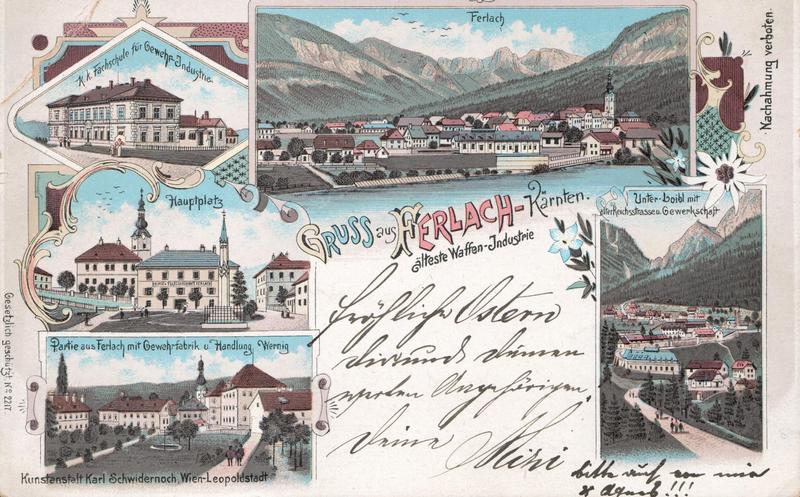 K. k. Fachschule für Gewehr-Industrie.
Ferlach
Nachahmung verboten.
Hauptplatz
GRUSS aus FERLACH-Kärnten.
älteste Waffen-Industrie
Unter-Loibl mit
alter Reichsstrasse u. Gewerkschaft
Partie aus Ferlach mit Gewehrfabrik u. Handlung Wernig
Gesetzlich geschützt No. 2217
Fröhliche Ostern
Dir und Deinen
werten Angehörigen
Deine Mizi
bitte auch von mir
Kunstanstalt Karl Schwidernoch, Wien-Leopoldstadt